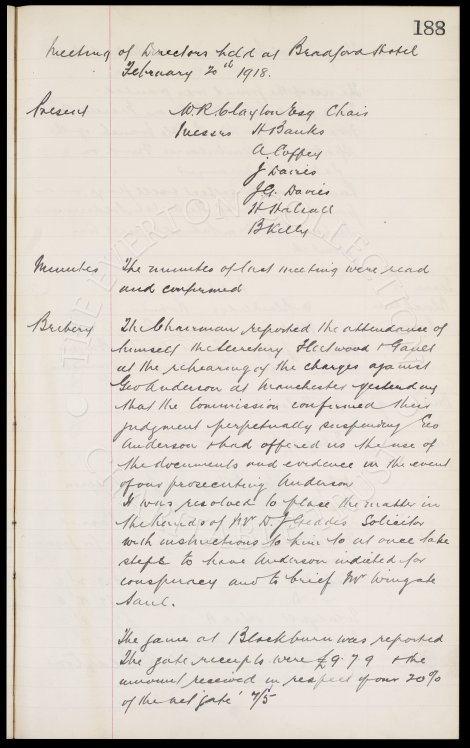 188
Meeting of Directors held at Bradford Hotel
February 20th 1918.
Present W.R. Clayton Esq Chair
Messrs H Banks
A. Coffey
J Davies
J.G. Davies
H Halsall
B Kelly
Minutes The minutes of last meeting were read
and confirmed
Bribery The Chairman reported the attendance of
himself the Secretary Fleetwood & Gault
at the rehearing of the charges against
Geo Anderson at Manchester yesterday
that the Commission confirmed their
judgment perpetually suspending Geo
Anderson & had offered us the use of
the documents and evidence in the event
of our prosecuting Anderson
It was resolved to place the matter in
the hands of Mr D. J Geddes Solicitor
with instructions to him to at once take
steps to have Anderson indicted for
conspiracy and to brief Mr Wingate
Saul.
The game at Blackburn was reported
The gate receipts were £9.7.9 & the
amount received in respect of our 20%
of the net gate 7/5
THE EVERTON COLLECTION